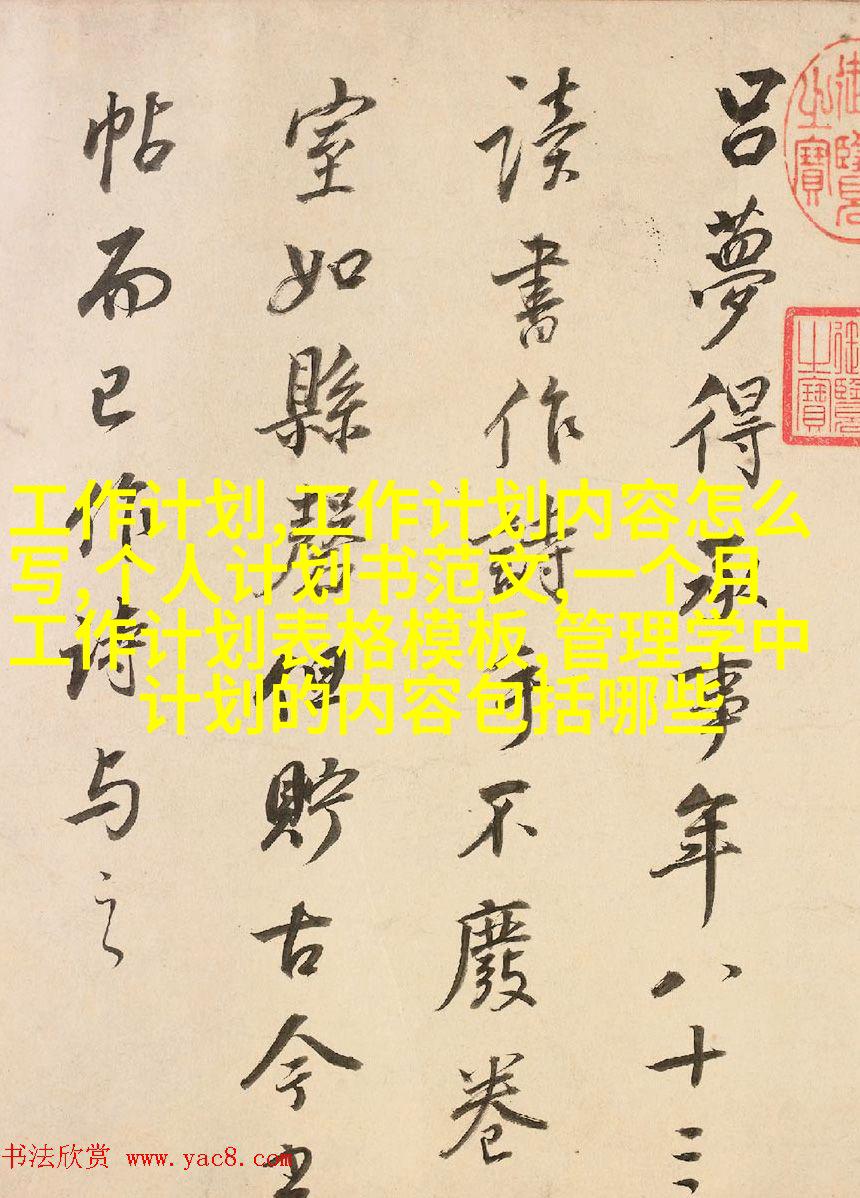 呂夢得承事年八十三
讀書作詩手不廢卷
室如縣磬但貯古今
帖而已作詩与之
御覽之寶
御覽之寶
工作计划,工作计划内容怎么
写,个人计划书范文,一个月
工作计划表格模板,管理学中
计划的内容包括哪些
书法欣赏 www.yac8.com